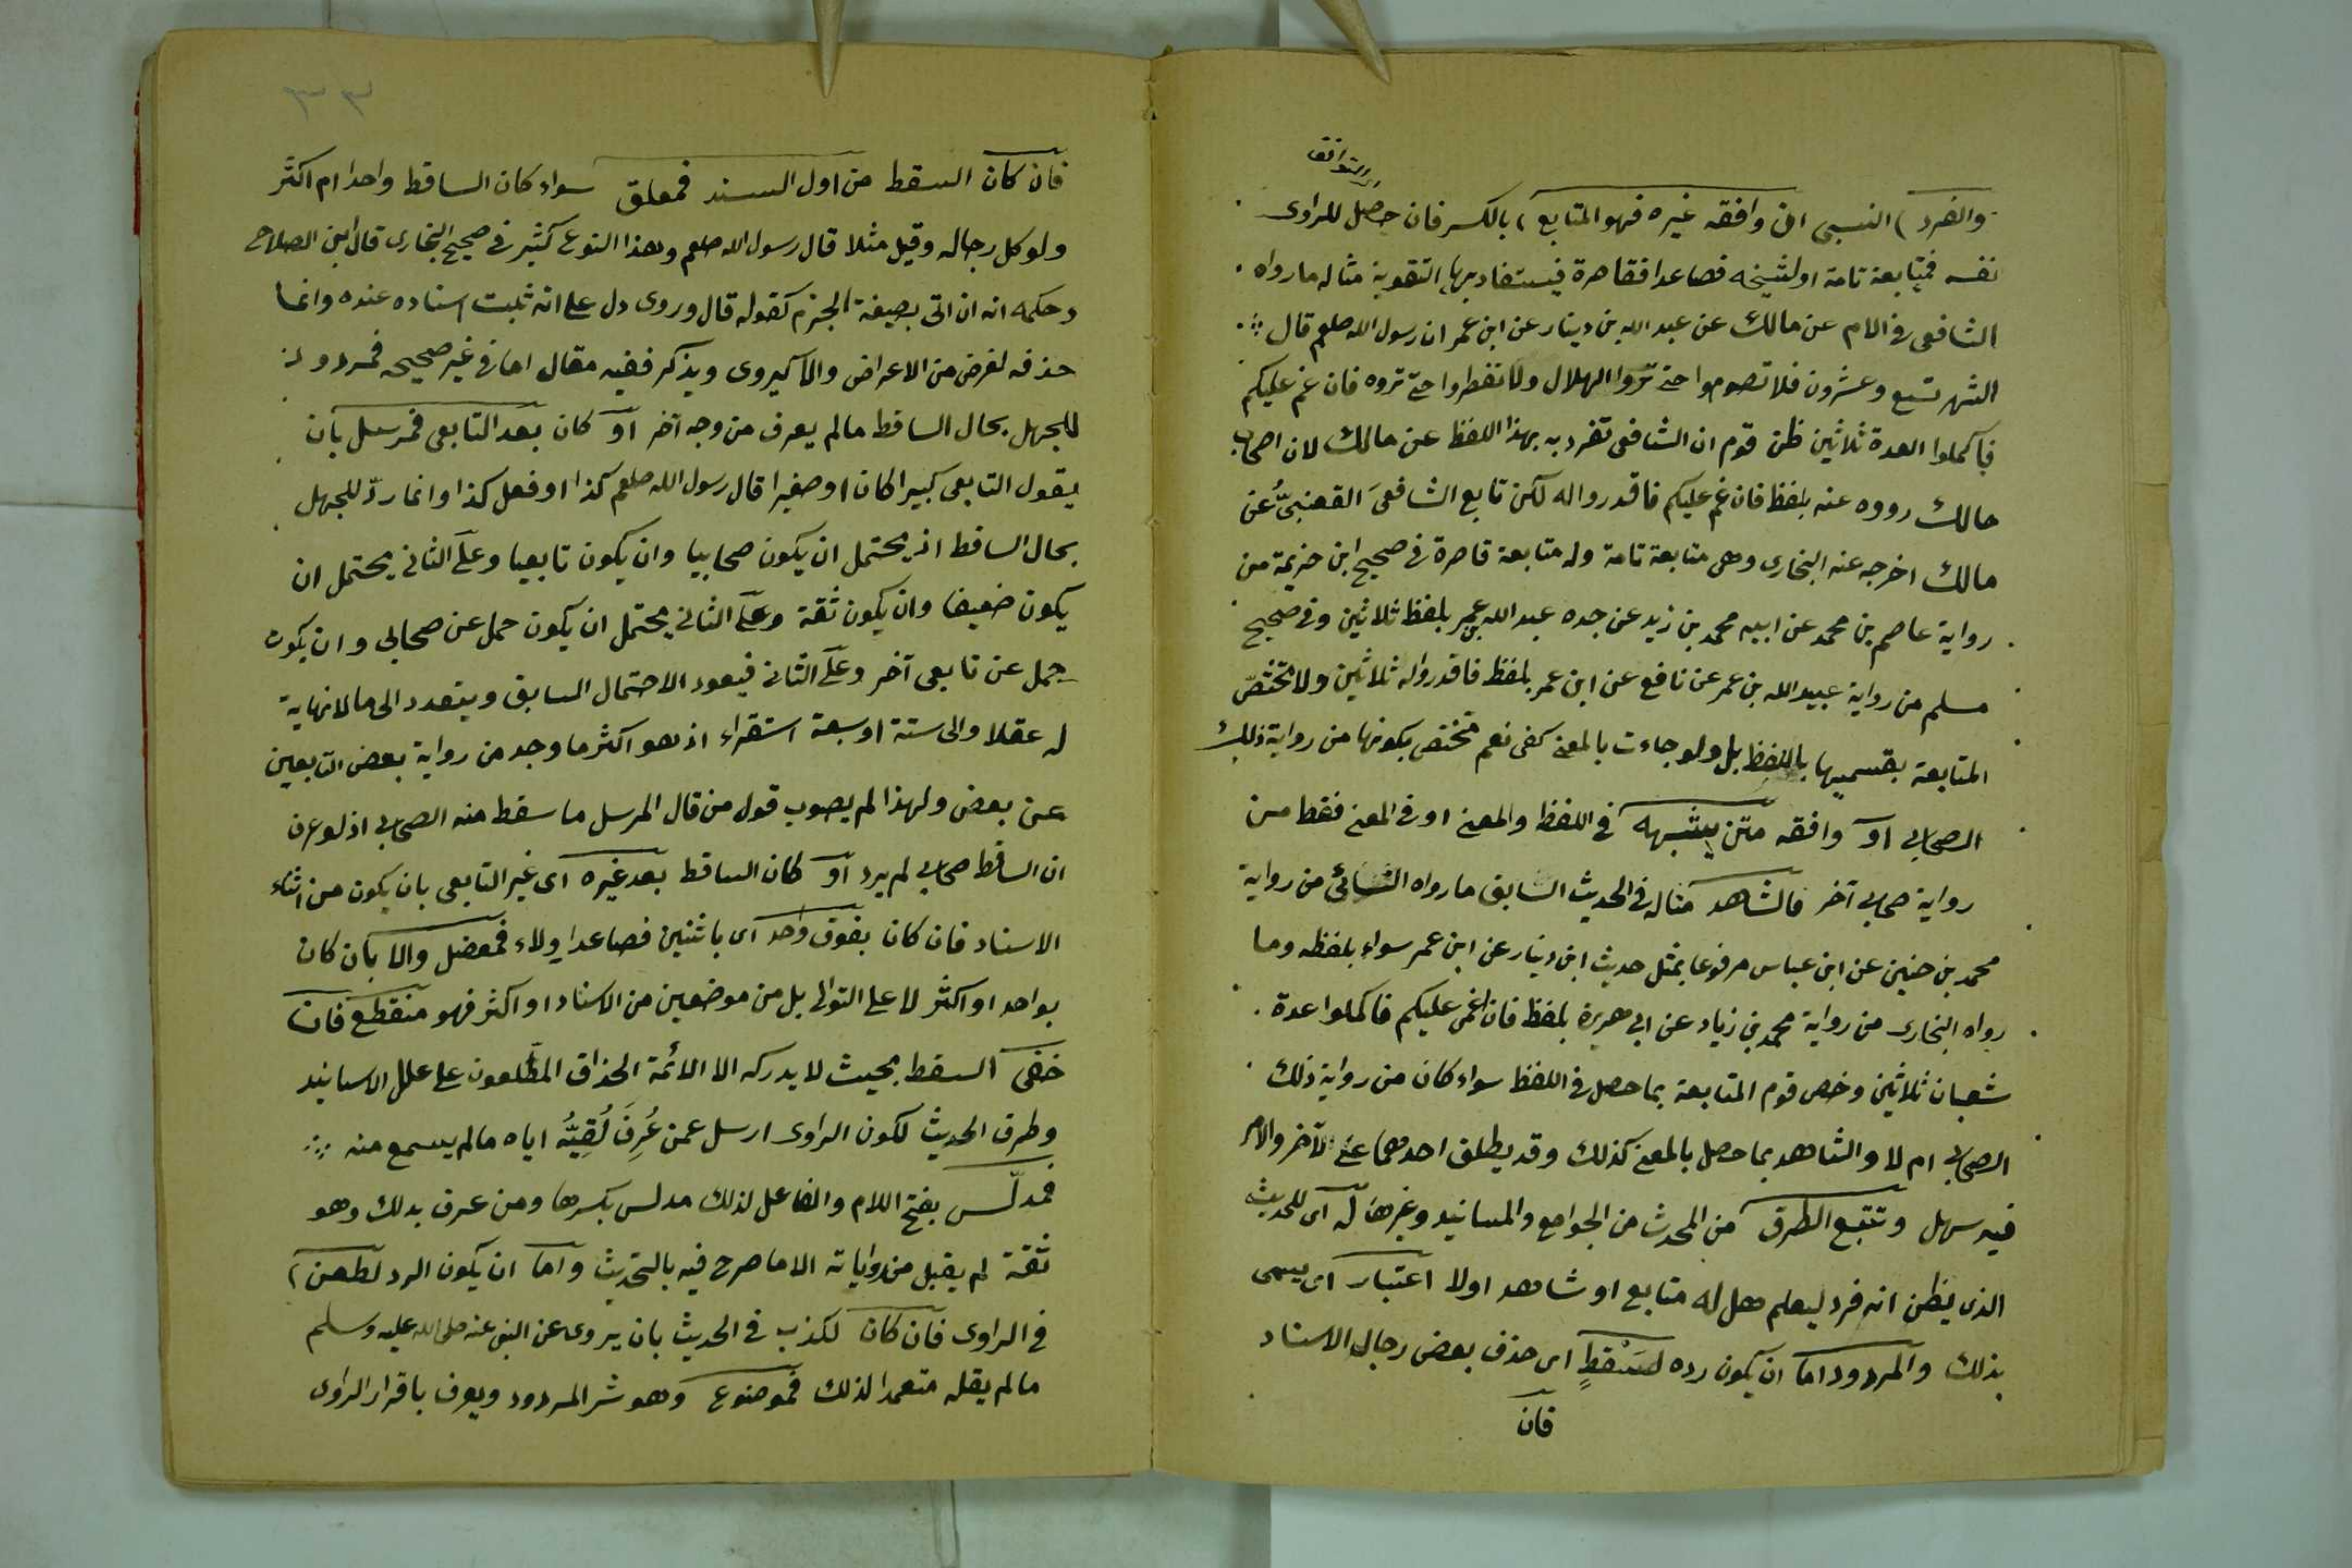 اى التوافق
والفرد) النسبى ان وافقه غيره فهو المتابع) بالكسر فان حصل للراوى
نفسه فمتابعة تامة او لشيخه فصاعدا فقاصرة فيستفاد بها التقوية مثاله ما رواه
الشافعى فى الام عن مالك عن عبد الله بن دينار عن ابن عمر ان رسول الله صلعم قال
الشهر تسع وعشرون فلا تصوموا حتى تروا الهلال ولا تفطروا حتى تروه فان غم عليكم
فاكملوا العدة ثلاثين ظن قوم ان الشافعى تفرد به بهذا اللفظ عن مالك لان اصحاب
مالك رووه عنه بلفظ فان غم عليكم فاقدروا له لكن تابع الشافعىَ القعنبىُّ عن
مالك اخرجه عنه البخارى وهى متابعة تامة وله متابعة قاصرة فى صحيح ابن خزيمة من
رواية عاصم بن محمد عن ابيه محمد بن زيد عن جده عبد الله بن عمر بلفظ ثلاثين وفى صحيح
مسلم من رواية عبيد الله بن عمر عن نافع عن ابن عمر بلفظ فاقدروا له ثلاثين ولا تختصّ
المتابعة بقسميها باللفظ بل ولو جاءت بالمعنى كفى نعم تختص بكونها من رواية ذلك
الصحابى او وافقه متن يشبهه فى اللفظ والمعنى او فى المعنى فقط من
رواية صحابى آخر فالشاهد مثاله فى الحديث السابق ما رواه النسائى من رواية
محمد بن حنين عن ابن عباس مرفوعا بمثل حديث ابن دينار عن ابن عمر سواء بلفظه وما
رواه البخارى من رواية محمد بن زياد عن ابى هريرة بلفظ فان اغمى عليكم فاكملوا عدة
شعبان ثلاثين وخص قوم المتابعة بما حصل فى اللفظ سواء كان من رواية ذلك
الصحابى ام لا والشاهد بما حصل بالمعنى كذلك وقد يطلق احدهما على الآخر والامر
فيه سهل وتتبع الطرق من المحدث من الجوامع والمسانيد وغيرها له اى للحديث
الذى يظن انه فرد ليعلم هل له متابع او شاهد اولا اعتبار اى يسمى
بذلك والمردود اما ان يكون رده لسَقْطٍ اى حذف بعض رجال الاسناد
فان
٣٣
فان كان السقط من اول السند فمعلق سواء كان الساقط واحدا ام اكثر
ولو كل رجاله وقيل مثلا قال رسول الله صلعم وهذا النوع كثير فى صحيح البخارى قال ابن الصلاح
وحكمه انه ان اتى بصيغة الجزم كقوله قال وروى دل على انه ثبت اسناده عنده وانما
حذفه لغرض من الاعراض والا كيروى ويذكر ففيه مقال اما فى غير صحيحه فمردود
للجهل بحال الساقط ما لم يعرف من وجه آخر او كان بعد التابعى فمرسل بان
يقول التابعى كبيرا كان او صغيرا قال رسول الله صلعم كذا او فعل كذا وانما ردّ للجهل
بحال الساقط اذ يحتمل ان يكون صحابيا وان يكون تابعيا وعلى الثانى يحتمل ان
يكون ضعيفا وان يكون ثقة وعلى الثانى يحتمل ان يكون حمل عن صحابى وان يكون
حمل عن تابعى آخر وعلى الثانى فيعود الاحتمال السابق ويتعدد الى ما لا نهاية
له عقلا والى ستة او سبعة استقراء اذ هو اكثر ما وجد من رواية بعض التابعين
عن بعض ولهذا لم يصوب قول من قال المرسل ما سقط منه الصحابى اذ لو عرف
ان الساقط صحابى لم يرد او كان الساقط بعد غيره اى غير التابعى بان يكون من اثناء
الاسناد فان كان بفوق واحد اى باثنين فصاعدا ولاء فمعضل والا بان كان
بواحد او اكثر لا على التوالى بل من موضعين من الاسناد او اكثر فهو منقطع فان
خفى السقط بحيث لا يدركه الا الائمة الحذاق المطّلعون على علل الاسانيد
وطرق الحديث لكون الراوى ارسل عمن عُرِفَ لُقِيُّه اياه ما لم يسمع منه
فمدلّس بفتح اللام والفاعل لذلك مدلس بكسرها ومن عرف بذلك وهو
ثقة لم يقبل من رواياته الا ما صرح فيه بالتحديث واما ان يكون الرد لطعن)
فى الراوى فان كان لكذب فى الحديث بان يروى عن النبى عنه صلى الله عليه وسلم
ما لم يقله متعمدا لذلك فموضوع وهو شر المردود ويعرف باقرار الراوى